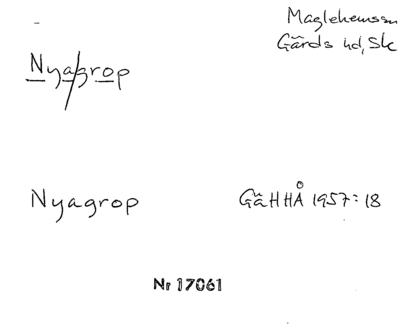 Maglehems sn
Gärds hd, Sk
Nyagrop
Nyagrop GäHHÅ 1957:18
Nr 17061